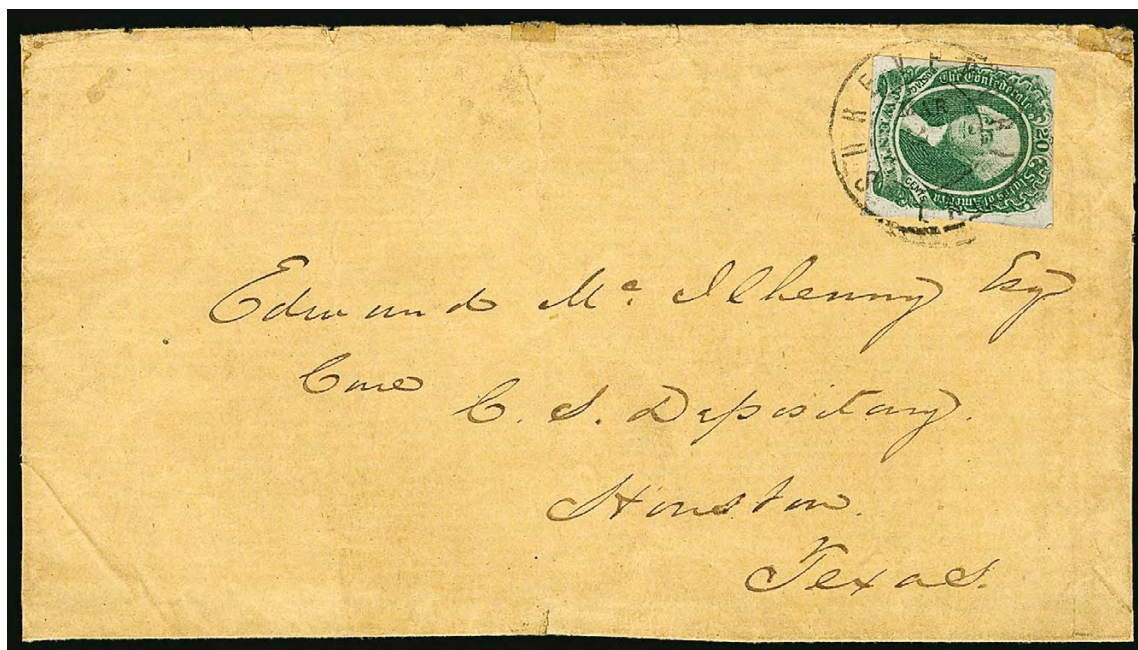 SHREVEPORT
LA
MAR
The Confederate States of America
20
CENTS
Edmund Mc Ilhenny Esq
Care
C. S. Depositary.
Houston.
Texas.